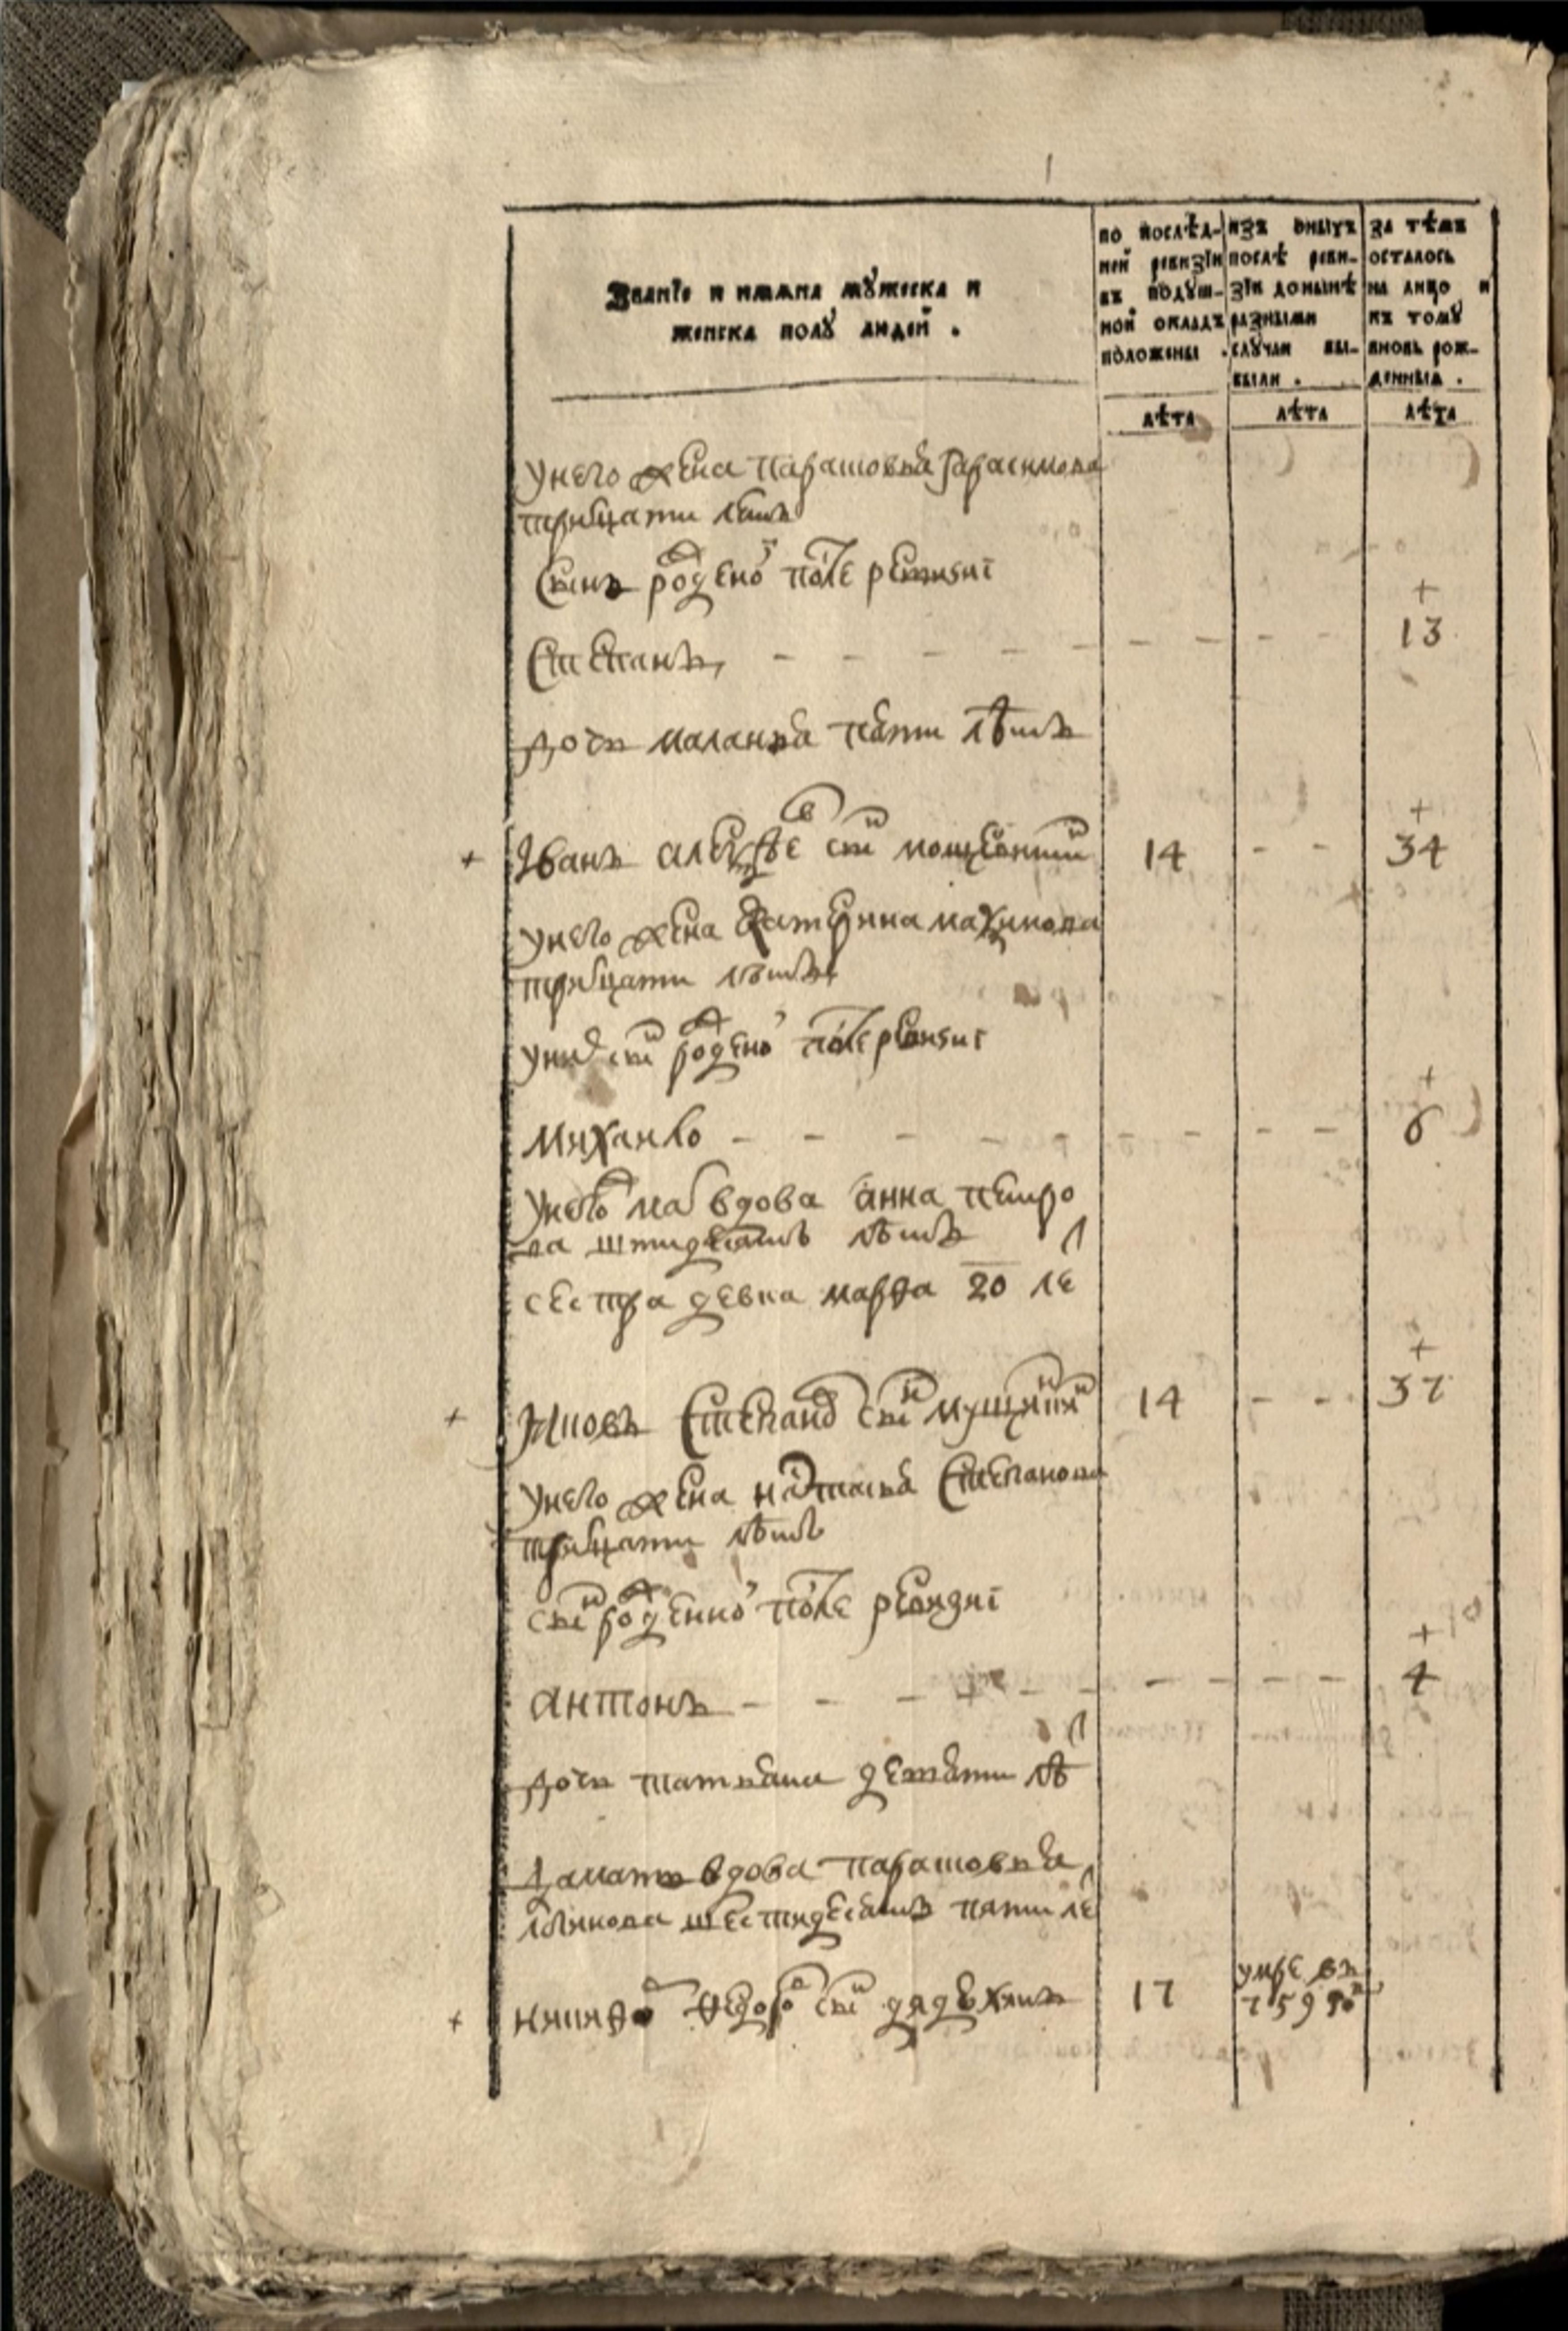 Званїе и имѧна мꙋжеска и
женска полꙋ людей .
по послѣд-
ней ревизїи
въ подꙋш-
ной окладъ
положены .
изъ оныхъ
послѣ реви-
зїи донынѣ
разными
слꙋчаи вы-
были .
за тѣмъ
осталось
на лицо и
къ томꙋ
вновь рож-
денныѧ .
лѣта лѣта лѣта
у него жена парасковья гарасимова
тритцати летъ
сынъ рожденої после ревизиї
+
Степанъ 13
дочь маланья пяти лѣтъ
+
+ Іванъ алексѣевъ снъ 14 34
у него жена катерина
тритцати лѣтъ
у них снъ рожденої после ревизиї
+
Михаило 6
у него мать вдова анна петро
ва лѣтъ
сестра девка марѳа 20 летъ
+
+ Яковъ Степановъ снъ 14 37
у него жена наталья Степанова
тритцати лѣтъ
снъ рожденної после ревизиї
+
антонъ 4
дочь татьяна девяти лѣтъ
да мать вдова парасковья
шестидесятъ пяти летъ
+ никиѳоръ ѳедоровъ снъ 17 умре въ
759 го